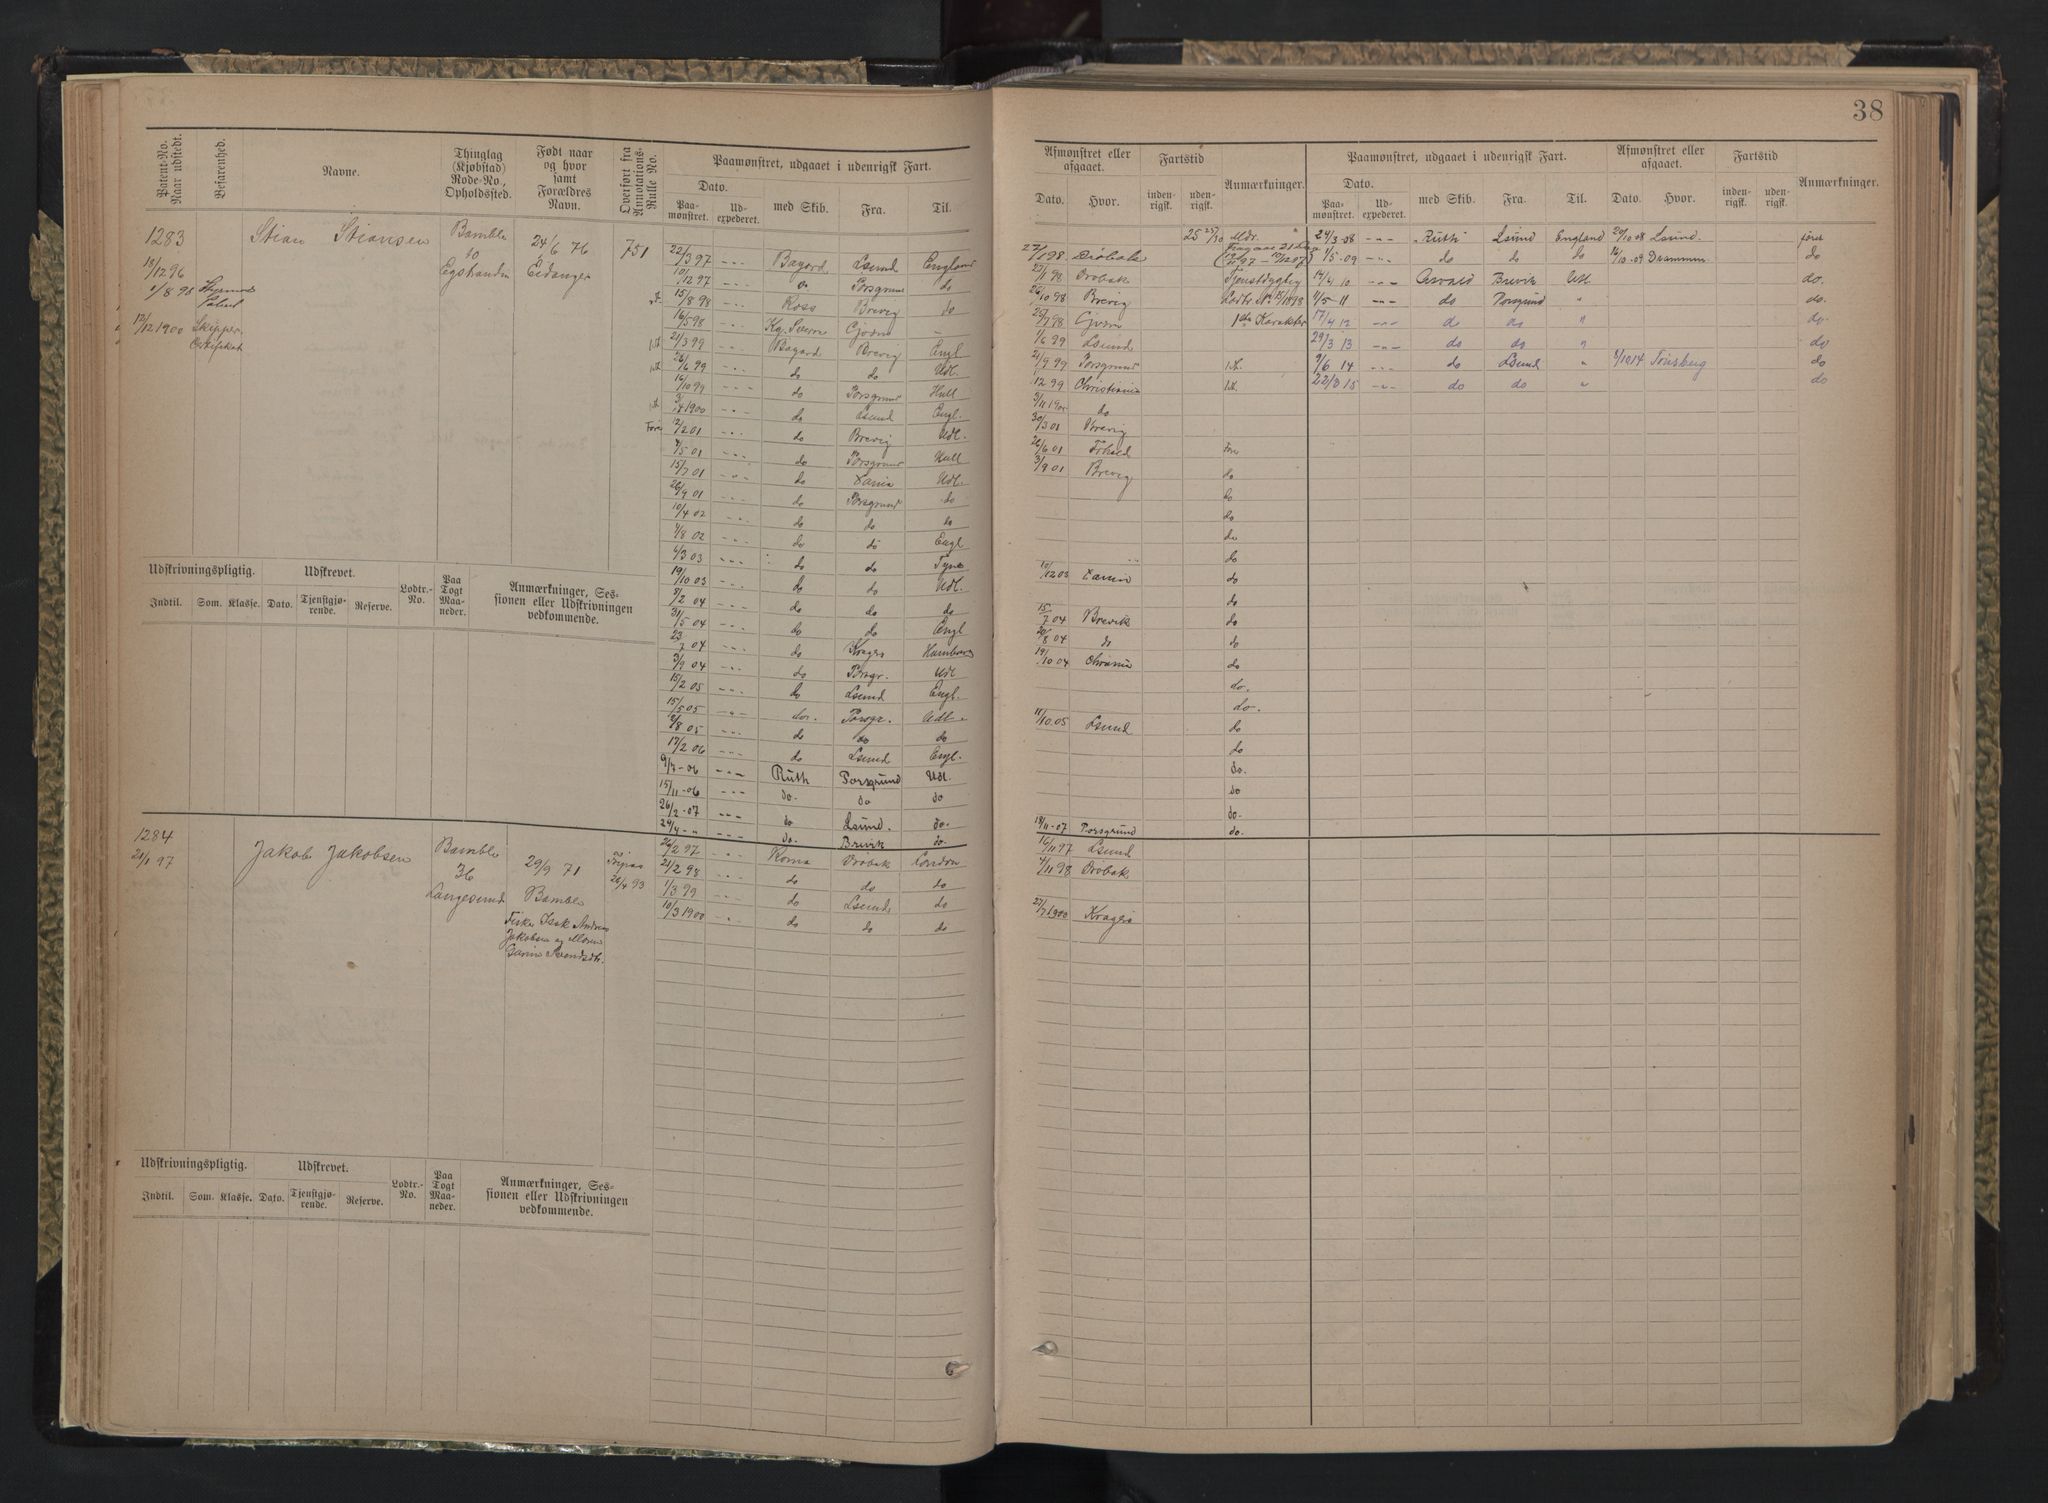 38
Patent-No. Naar udstedt.
Befarenhed.
Navne.
Thinglag (Kjøbstad) Rode-No., Opholdssted.
Født naar og hvor samt Forældres Navn.
Overført fra Annotations-Rulle No.
Paamønstret, udgaaet i udenrigsk Fart.
Dato.
Paamønstret.
Udexpederet.
med Skib.
Fra.
Til.
Afmønstret eller afgaaet.
Dato.
Hvor.
Fartstid
indenrigsk.
udenrigsk.
Anmærkninger.
Paamønstret, udgaaet i udenrigsk Fart.
Dato.
Paamønstret.
Udexpederet.
med Skib.
Fra.
Til.
Afmønstret eller afgaaet.
Dato.
Hvor.
Fartstid
indenrigsk.
udenrigsk.
Anmærkninger.
1283
13/12 96
1/8 98
12/12 1900 Skipper
Stian Stiansen
Bamble
10
24/6 76
Eidanger
751
22/3 97 Bagard Lsund England
10/12 97 do Porsgrund do
15/8 98 Ross Brevig do
16/5 98
21/3 99 Bagard Brevig Engl
26/6 99 do do Udl.
16/10 99 do Porsgrund Hull
3/4 1900 do Lsund Engl.
12/2 01 do Brevig Udl.
4/5 01 do Porsgrund Hull
15/7 01 do Udl.
26/9 01 do Porsgrund do
10/4 02 do do do
4/8 02 do do Engl
6/3 03 do do Tyne
19/10 03 do do Udl.
9/2 04 do do do
31/5 04 do do Engl
23/7 04 do Kragerø
3/9 04 do Porsgr. Udl
15/2 05 do Lsund Engl.
15/5 05 do. Porsgr. Udl.
9/8 05 do do do
17/2 06 do Lsund Engl.
9/7-06 Ruth Porsgrund Udl.
15/11-06 do. do do
26/2-07 do Lsund. do.
29/4-" do. Brevik do.
25 25/30 Mdr.
27/1 98 Drøbak
26/10 98 Brevig
1/6 99 Lsund
21/9 99 Porsgrund
12 99 Christiania
3/11 1900 do
30/3 01 Brevig
26/6 01
3/9 01 Brevig do
do
do
do
do
10/12 03 do
do
15/7 04 Brevik do
20/8 04 do do
19/10 04 Chrania do
do.
do.
11/10 05 Lsund do
do
do.
do
do.
18/11-07 Porsgrund do.
24/3-08 "Ruth" Lsund England 20/10 08 Lsund. fører
1/5-09 do do do 16/10-09 Drammen do
14/4 10 Osvald Brevik Udl. do.
4/5-11 do Porsgrund " do.
17/4 12 do do " do.
29/3 13 do do " do
9/6 14 do Lsund " 8/10 14 Tønsberg do
22/3 15 do do " do
Udskrivningspligtig.
Indtil.
Som.
Klasse.
Udskrevet.
Dato.
Tjenstgjørende.
Reserve.
Lodtr.-No.
Paa Togt Maaneder.
Anmærkninger, Sessionen eller Udskrivningen vedkommende.
1284
21/1 97
Jakob Jakobsen
Bamble
36
Langesund
29/9 71
Bamble
Jakobsen og Maren
26/2 97 Roma Drøbak London
21/2 98 do do do
1/3 99 do Lsund do
10/3 1900 do do do
16/11 97 Lsund
4/11 98 Drøbak
27/7 1900 Kragerø
Udskrivningspligtig.
Indtil.
Som.
Klasse.
Udskrevet.
Dato.
Tjenstgjørende.
Reserve.
Lodtr.-No.
Paa Togt Maaneder.
Anmærkninger, Sessionen eller Udskrivningen vedkommende.